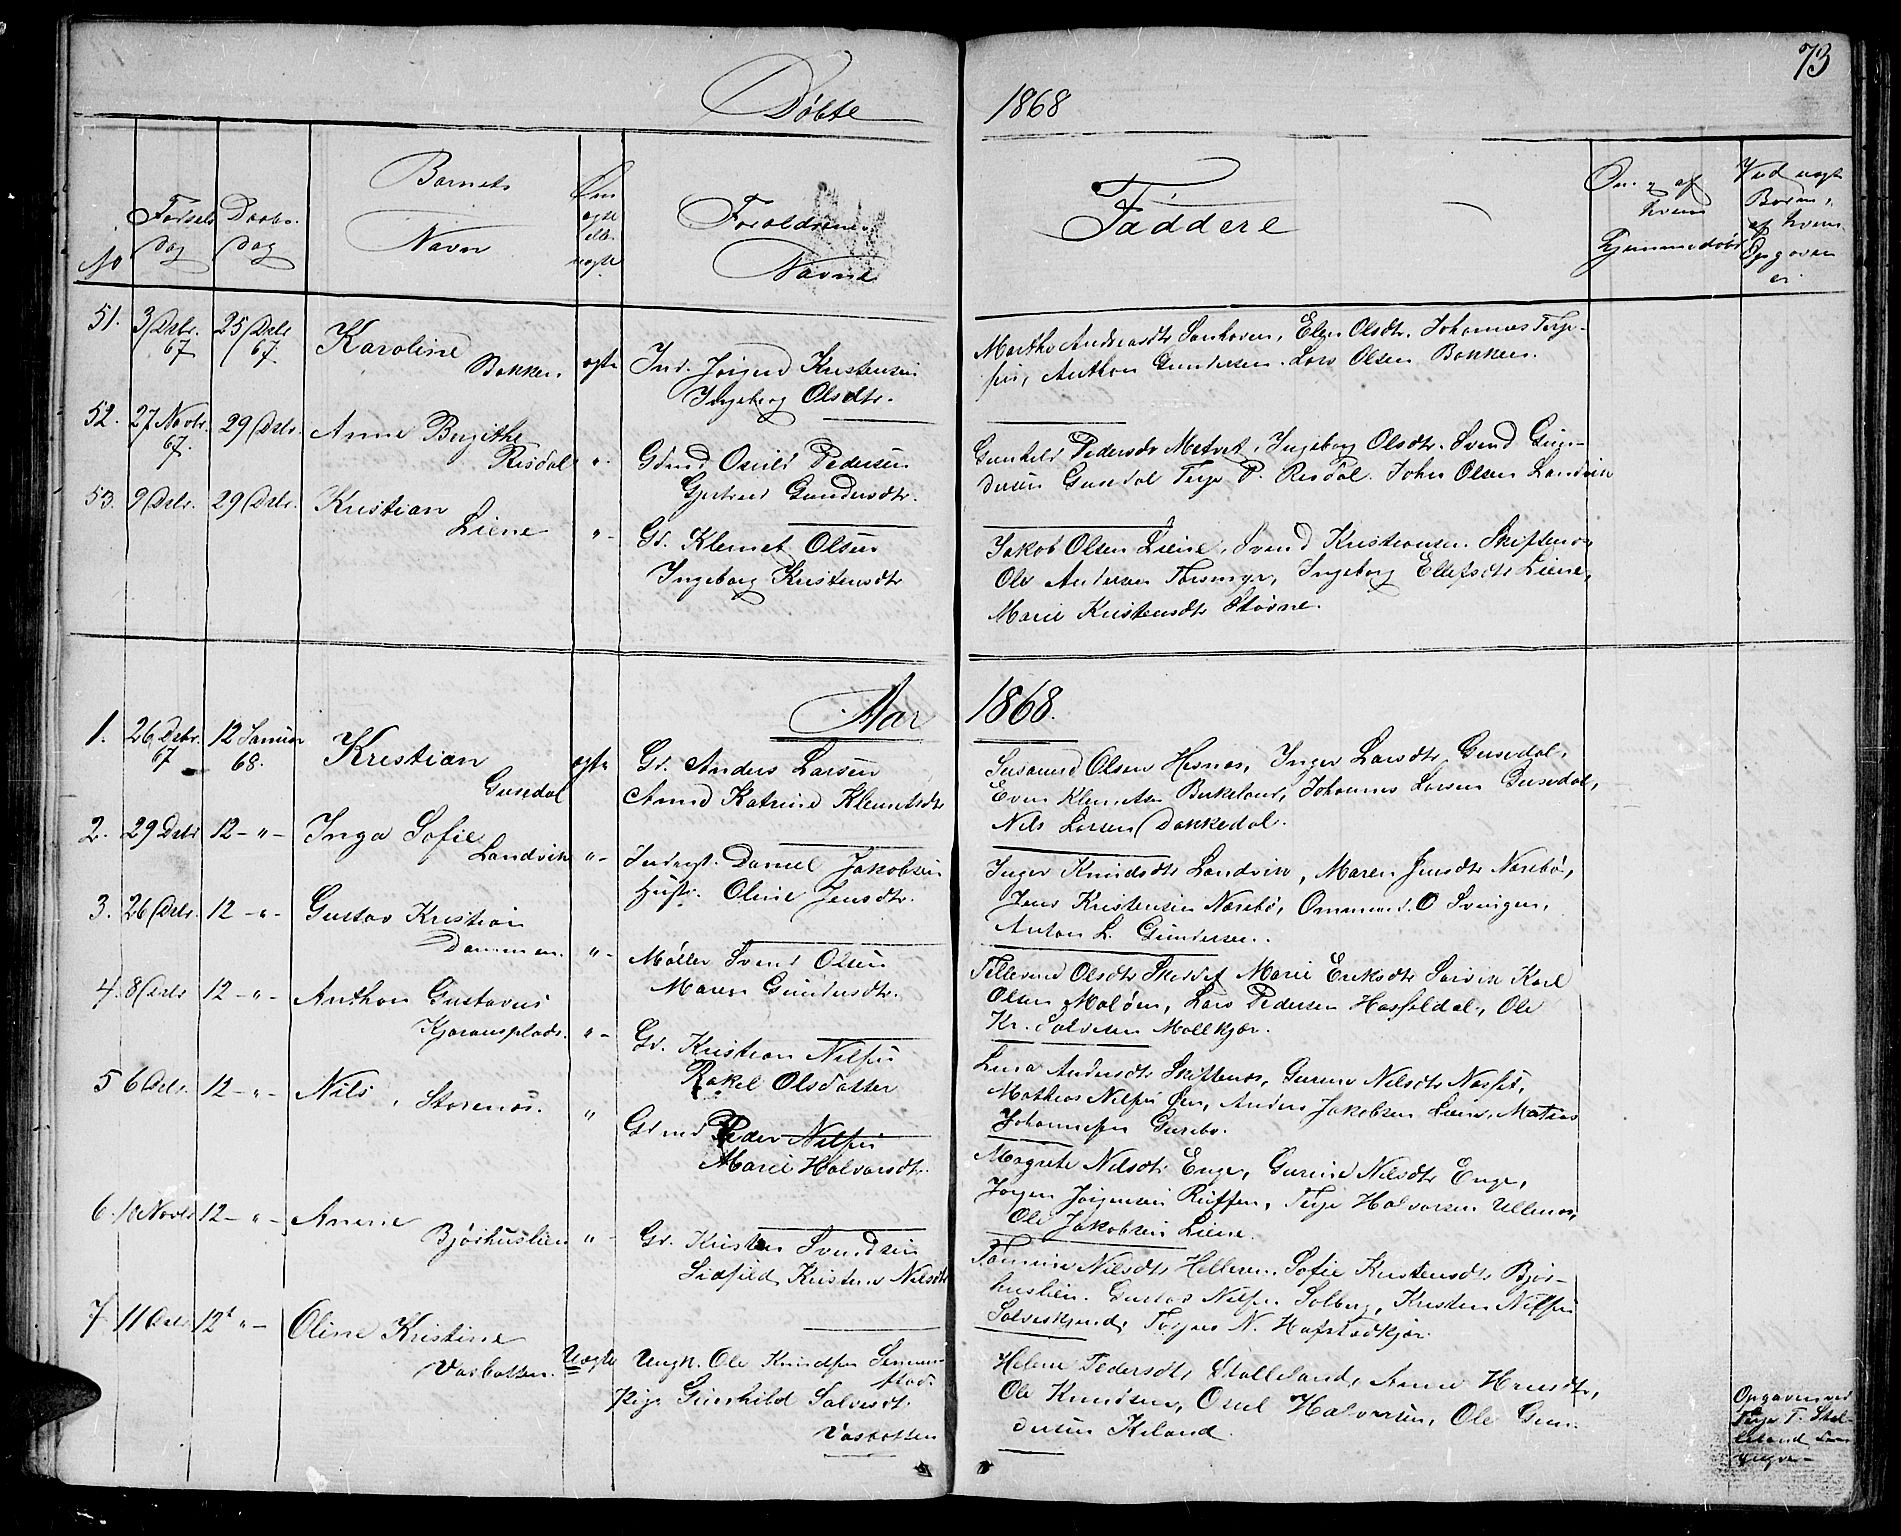 73
Döbte 1868
No
Fødsels Dag
Daabs Dag
Barnets Navn
Om ægte ell. uægte
Forældrenes Navne
Faddere
Om og af hvem hjemmedøbt
Ved uægte Børn, af hvem Opgaven er
51. 3 Dsbr. 67 25 Dsbr 67. Karoline Bakken. ægte Ind. Jörgen Kristensen
Ingeborg Olsdtr.
Marthe Andreasdtr Sanhaven, Elen Olsdtr. Johannes Terje-
sen, Anthon Gundersen. Lars Olsen Bakken.
52. 27 Novbr. 67. 29 Dsbr. Anne Birgithe Risdal "- Gdmd Osuld Pedersen
Gjertrud Gundersdtr.
Gunhild Pedersdtr Metvet, Ingeborg Olsdtr. Svend Gun-
dersen Gusedal Terje P. Risdal. John Olsen Landvik
53. 9 Dsbr. 29 Dsbr. Kristian Liene "- Gd. Klemet Olsen
Ingeborg Kristensdtr
Jakob Olsen Liene, Svend Kristiansen. Skiftenæs
Ole Andersen Tørsmyr, Ingeborg Ellefsdtr Liene,
Marie Kristensdtr Støvne.
Aar 1868.
1. 26 Dsbr. 67 12 Januar 68. Kristian Gusedal ægte Gd. Anders Larsen
Anne Katrine Klemetsdtr
Susanne Olsen Hesnæs, Inger Larsdtr Gusedal,
Even Klemetsen Birkeland, Johannes Larsen Gusedal,
Nils Larsen Dokkedal.
2. 29 Dsbr 12-"- Inga Sofie Landvik "- Inderst. Daniel Jakobsen
Hustr. Oline Jensdtr.
Inger Knudsdtr Landvik, Maren Jensdtr Næsebø,
Jens Kristensen Næsebø, Ommund. O Svingen,
Anton L. Gundersen.
3. 26 Dsbr. 12-"- Gustav Kristian Dammen. "- Møller Svend Olsen
Maren Gundersdtr.
Tellevine Olsdtr Marie Eriksdtr Karl
Olsen Moløen, Lars Pedersen Hasseldal, Ole
Kr. Salvesen Mollkjær.
4. 8 Dsbr 12-"- Anthon Gustavus Kjøransplads. "- Gd. Kristian Nilsen
Rakel Olsdatter
Lina Andersdtr Skiftenæs, Gurine Nilsdtr
Mathias Nilsen Øen, Anders Jakobsen Liene, Matias
Johannesen Gusebo.
5 6 Dsbr. 12-"- Nils Storenæs. " Gdmd Peder Nilsen
Marie Halvorsdtr.
Magrete Nilsdtr Enge, Gurine Nilsdtr Enge,
Jørgen Jørgensen Terje Halvorsen Ullenæs,
Ole Jakobsen Liene.
6. 10 Novbr 12-"- Anerie Bjørhuslien "- Gd. Kristen Svendsen
Kristine Nilsdtr
Tomine Nilsdtr Helleren. Sofie Kristensdtr Bjør-
huslien. Gustav Nilsen Solberg, Kristen Nilsen
Torjus N. Hafstadkjær.
7. 11 Dsbr 12t "- Oline Kristine Vasbotten. Uægte Ungk. Ole Knudsen
Pige Gunhild Salvesdtr
Vasbotten
Helene Pedersdtr Stalleland, Anne Hansdtr,
Ole Knudsen, Osul Halvorsen, Ole Gun-
dersen Keland.
Opgaven ved
Terje T. Stal-
leland